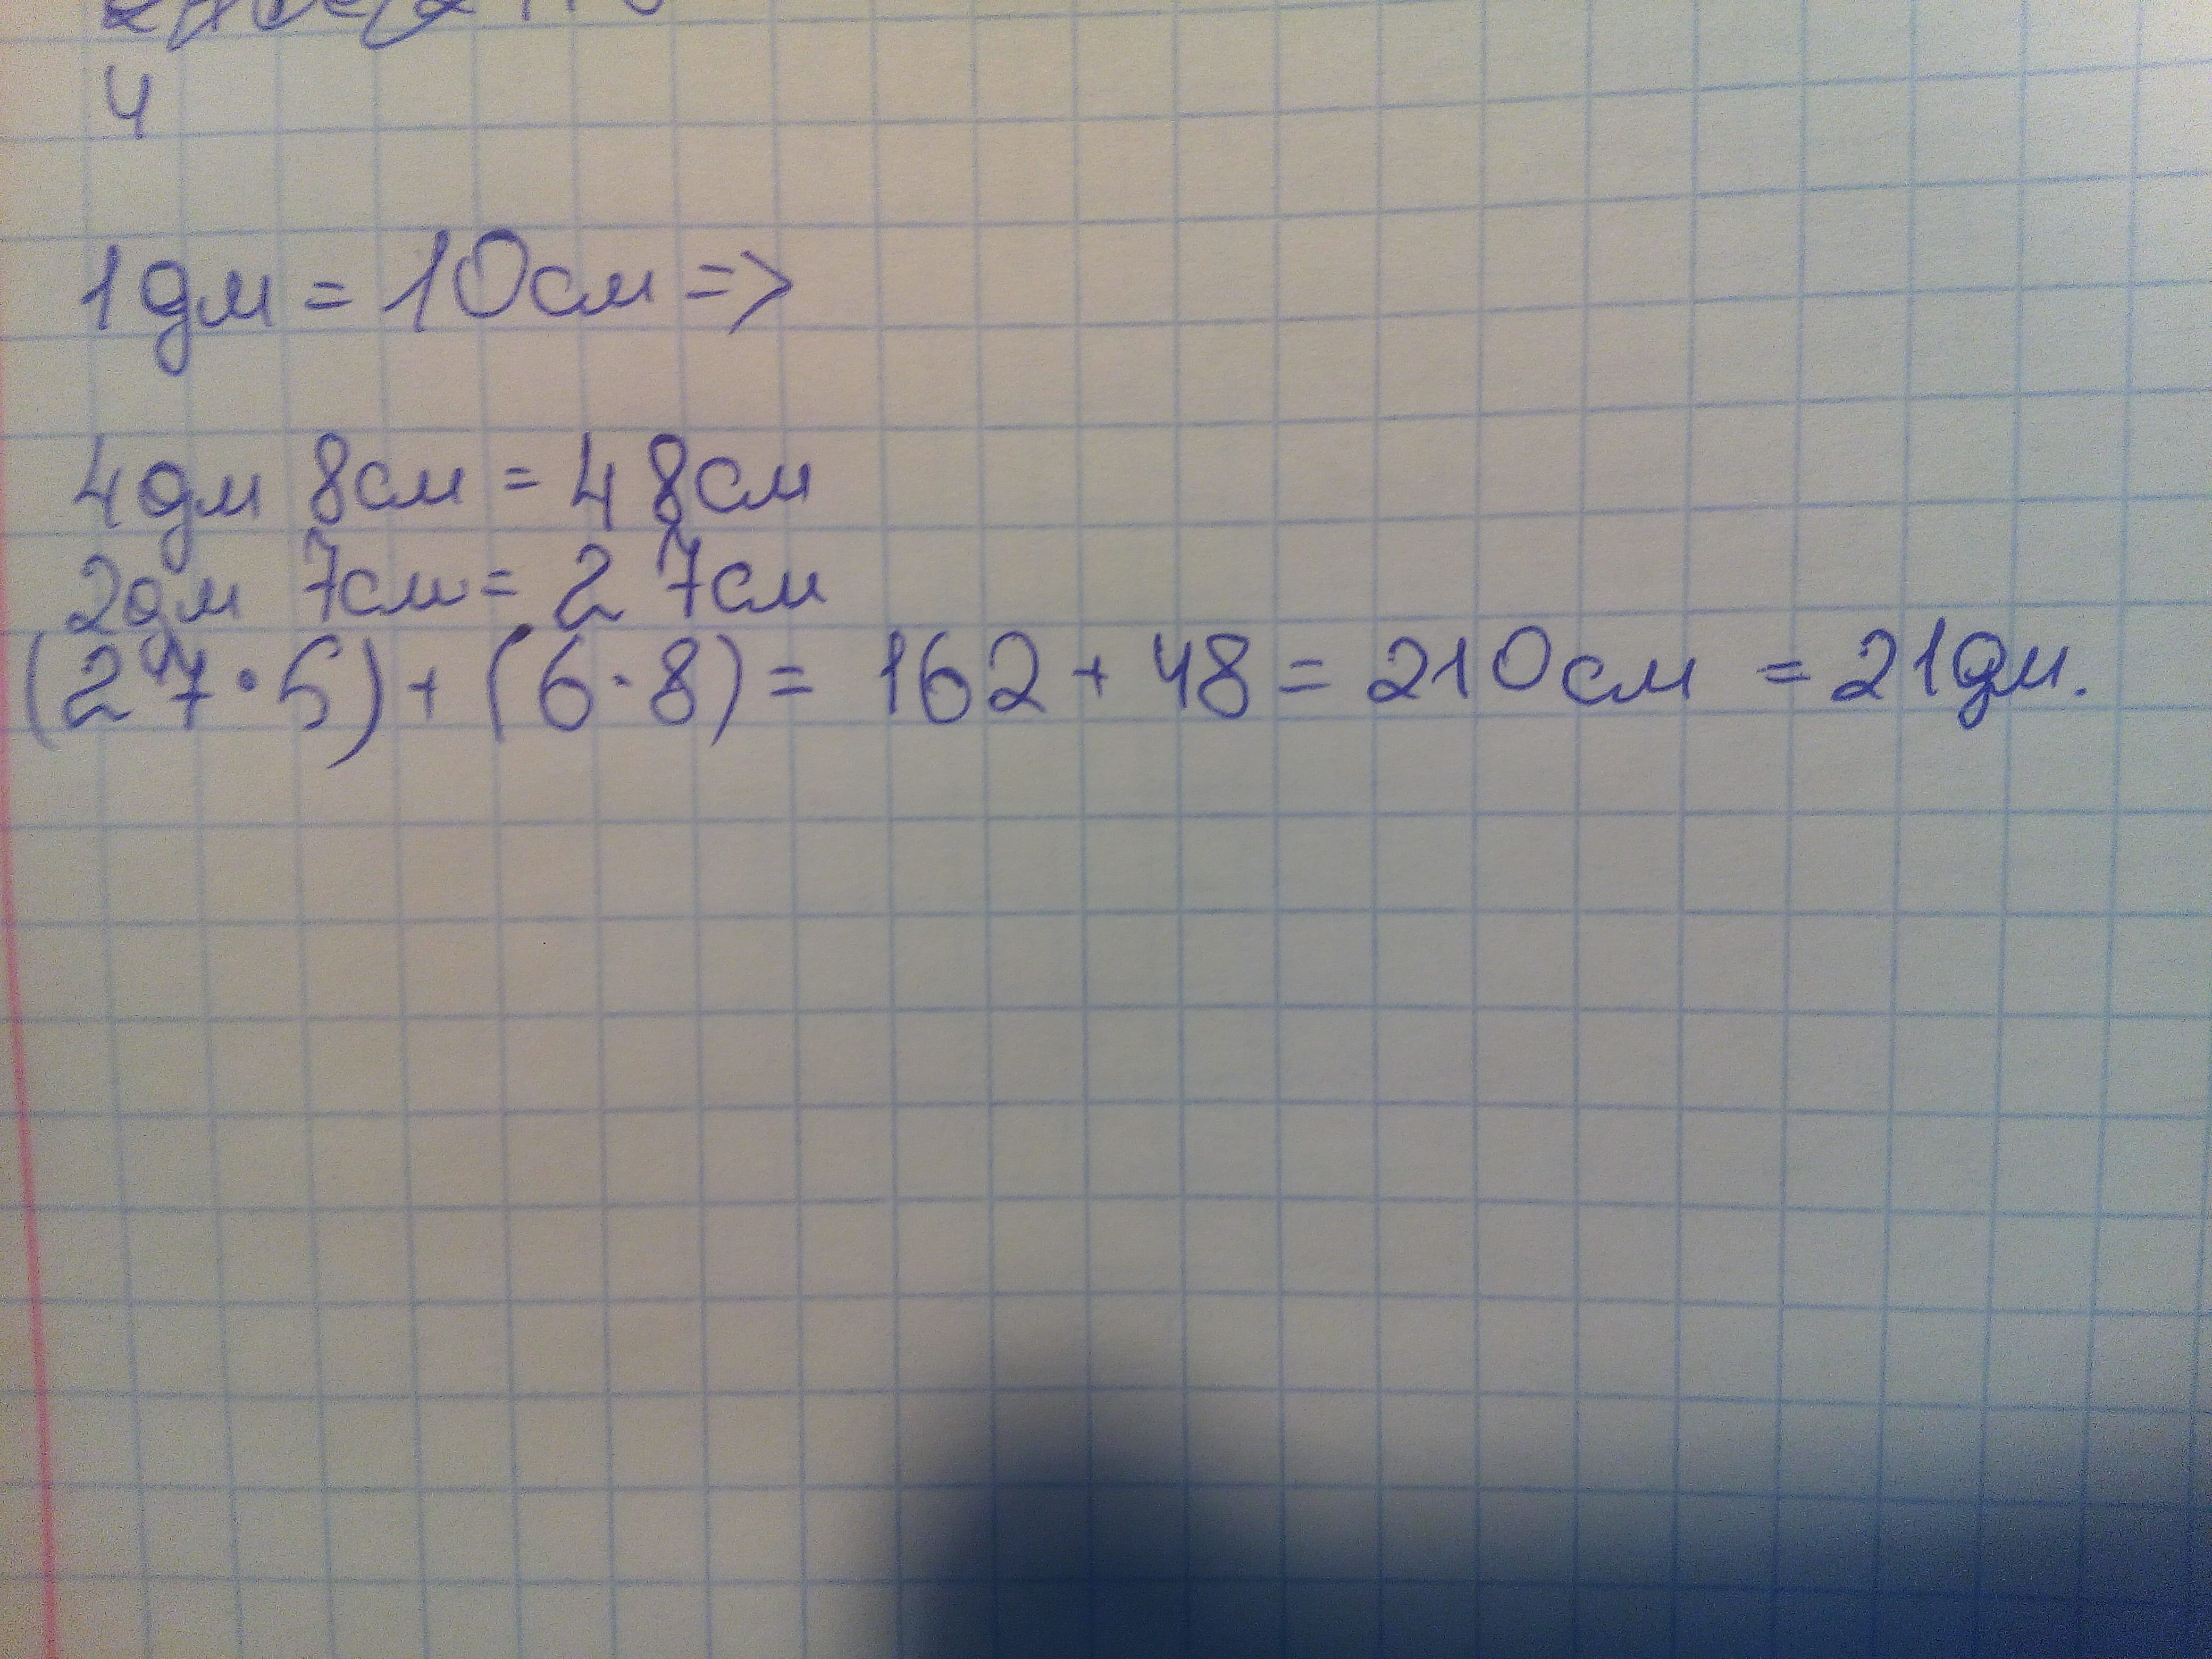 4
1дм = 10см =>
4дм 8см = 48см
2дм 7см = 27см
(27·6)+(6·8)= 162+48=210см =21дм.